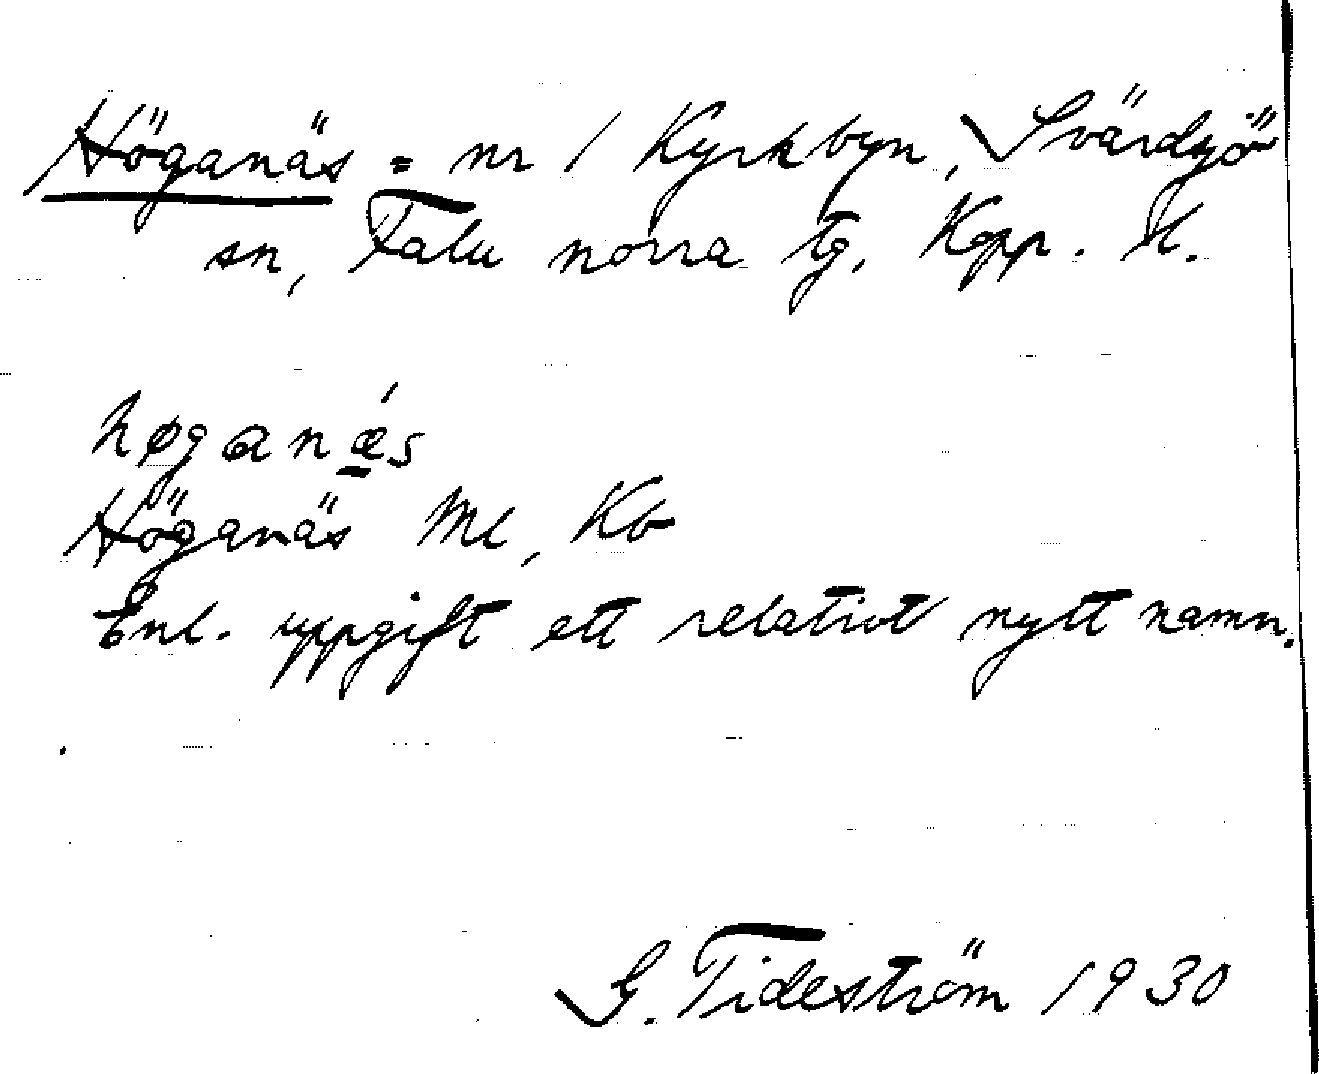 Höganäs = nr 1 Kyrkbyn, Svärdsjö
sn, Falu norra tg, Kopp. l.
høganǽs
Höganäs Ml, Kb
Enl. uppgift ett relativt nytt namn.
G. Tideström 1930